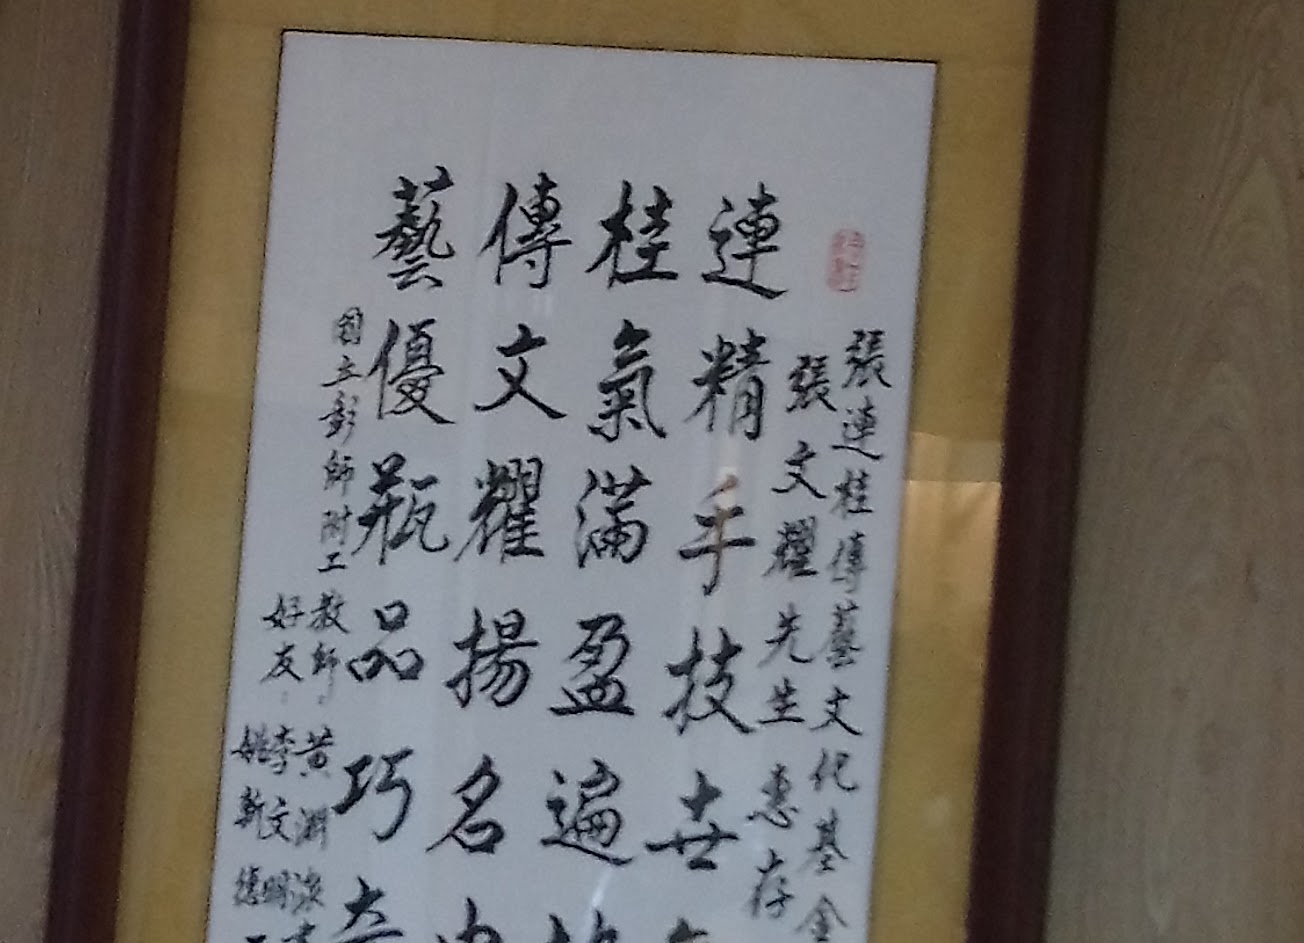 張連桂傳藝文化基金
張文耀先生惠存
連精手技世
桂氣滿盈遍
傳文耀揚名
藝優瓶品巧奇
國立彰師附工
教師 黃淵
好友 李文
姚新德